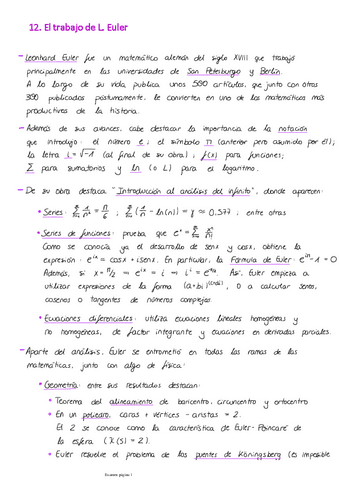 12. El trabajo de L. Euler
– Leonhard Euler fue un matemático alemán del siglo XVIII que trabajó
principalmente en las universidades de San Petersburgo y Berlín.
A lo largo de su vida publica unos 590 artículos, que junto con otros
390 publicados póstumamente, le convierten en uno de los matemáticos más
productivos de la historia.
– Además de sus avances, cabe destacar la importancia de la notación
que introdujo: el número e; el símbolo π (anterior pero asumido por él);
la letra i = √-1 (al final de su obra); f(x) para funciones;
Σ para sumatorios y ln (o L) para el logaritmo.
– De su obra destaca "Introducción al análisis del infinito", donde aparecen:
• Series: Σ 1/n² = π/6 ; Σ (1/n - ln(n)) = γ ≈ 0.577 ; entre otras
• Series de funciones: prueba que eˣ = Σ xⁿ/n!
Como se conocía ya el desarrollo de senx y cosx, obtiene la
expresión: e^ix = cosx + isenx. En particular, la Fórmula de Euler: e^iπ - 1 = 0
Además, si x = π/2 → e^ix = i → iⁱ = e^-π/2. Así Euler empieza a
utilizar expresiones de la forma (a+bi)^(c+di), o a calcular senos,
cosenos o tangentes de números complejos.
• Ecuaciones diferenciales: utiliza ecuaciones lineales homogéneas y
no homogéneas, de factor integrante y ecuaciones en derivadas parciales.
– Aparte del análisis, Euler se entrometió en todas las ramas de las
matemáticas, junto con algo de física:
• Geometría: entre sus resultados destacan:
• Teorema del alineamiento de baricentro, circuncentro y ortocentro
• En un poliedro, caras + vértices - aristas = 2.
El 2 se conoce como la característica de Euler-Poincaré de
la esfera (χ(S) = 2).
• Euler resuelve el problema de los puentes de Köningsberg (es imposible
Examen página 1